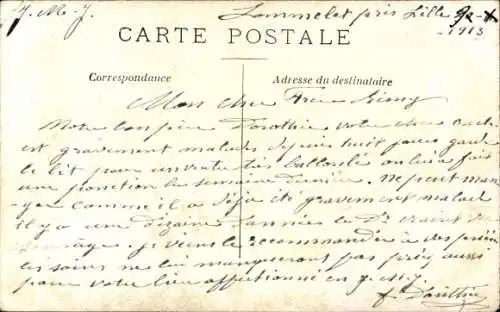 J. M. J.
Lommelet près Lille
1913
CARTE POSTALE
Correspondance
Adresse du destinataire
Mon cher Frère Rémy
Notre confrère Dorothée votre cher
est gravement malade depuis huit jours garde
le lit pour un ventre très ballonné on lui a fait
une ponction la semaine dernière. Ne peut man-
ger comme il a déjà été gravement malade
il y a une dizaine d'années le Dr craint
je viens le recommander à des
les soins ne lui manqueront pas priez aussi
pour votre bien affectionné en J. M. J.
f.